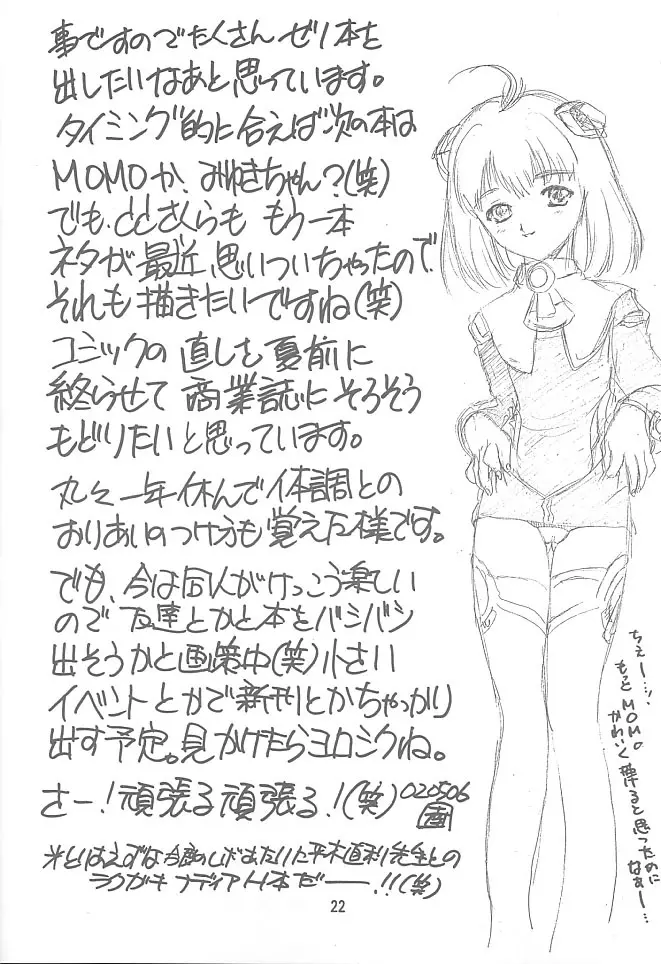 事ですのでたくさん ゼノ本を
出したいなあと思っています。
タイミング的に合えば次の本は
MOMOか、みゆきちゃん?(笑)
でも、CCさくらも もう一本
ネタが最近、思いついちゃったので、
それも描きたいですね(笑)
コミックの 直しを 夏前に
終らせて 商業誌に そろそろ
もどりたいと思っています。
丸々一年休んで体調との
おりあいのつけ方も覚えた様です。
でも、今は同人がけっこう楽しい
ので 友達とかと本をバシバシ
出そうかと画策中(笑)小さい
イベントとかで新刊とかちゃっかり
出す予定。見かけたらヨロシクね。
さー!頑張る頑張る!(笑)020506
※とりあえずは 今度の 平木直利先生との
ラクガキ ナディアH本だーー!!(笑)
ちぇー…。
もっとMOMO
かわいく
描ると思ったのに
なぁー…
22